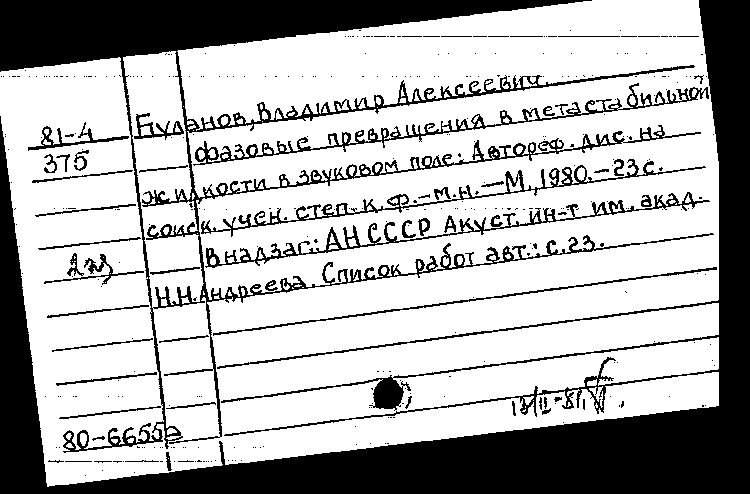 81-4
375
Буланов, Владимир Алексеевич.
Фазовые превращения в метастабильной
жидкости в звуковом поле: Автореф. дис. на
соиск. учен. степ. к. ф.-м.н. — М., 1980. — 23 с.
В надзаг.: АН СССР Акуст. ин-т им. акад.
Н.Н. Андреева. Список работ авт.: с. 23.
2 экз
80-6655а
13/II-81.